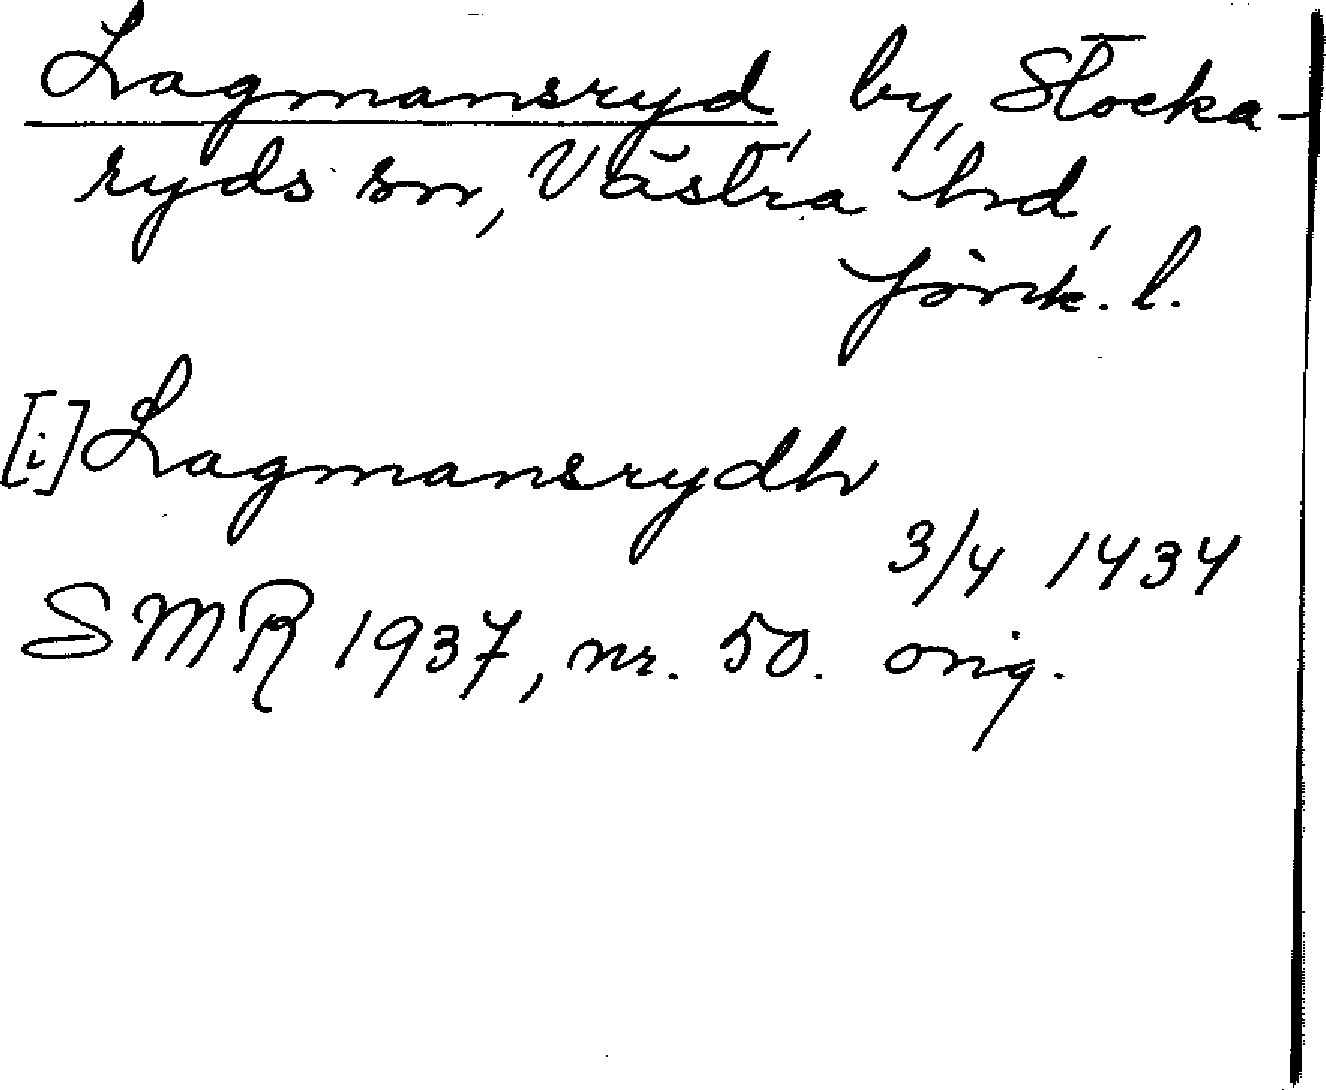 Lagmansryd, by, Stocka-
ryds sn, Västra hd,
Jönk. l.
[i] Lagmansrydh
3/4 1434
SMR 1937, nr. 50. orig.